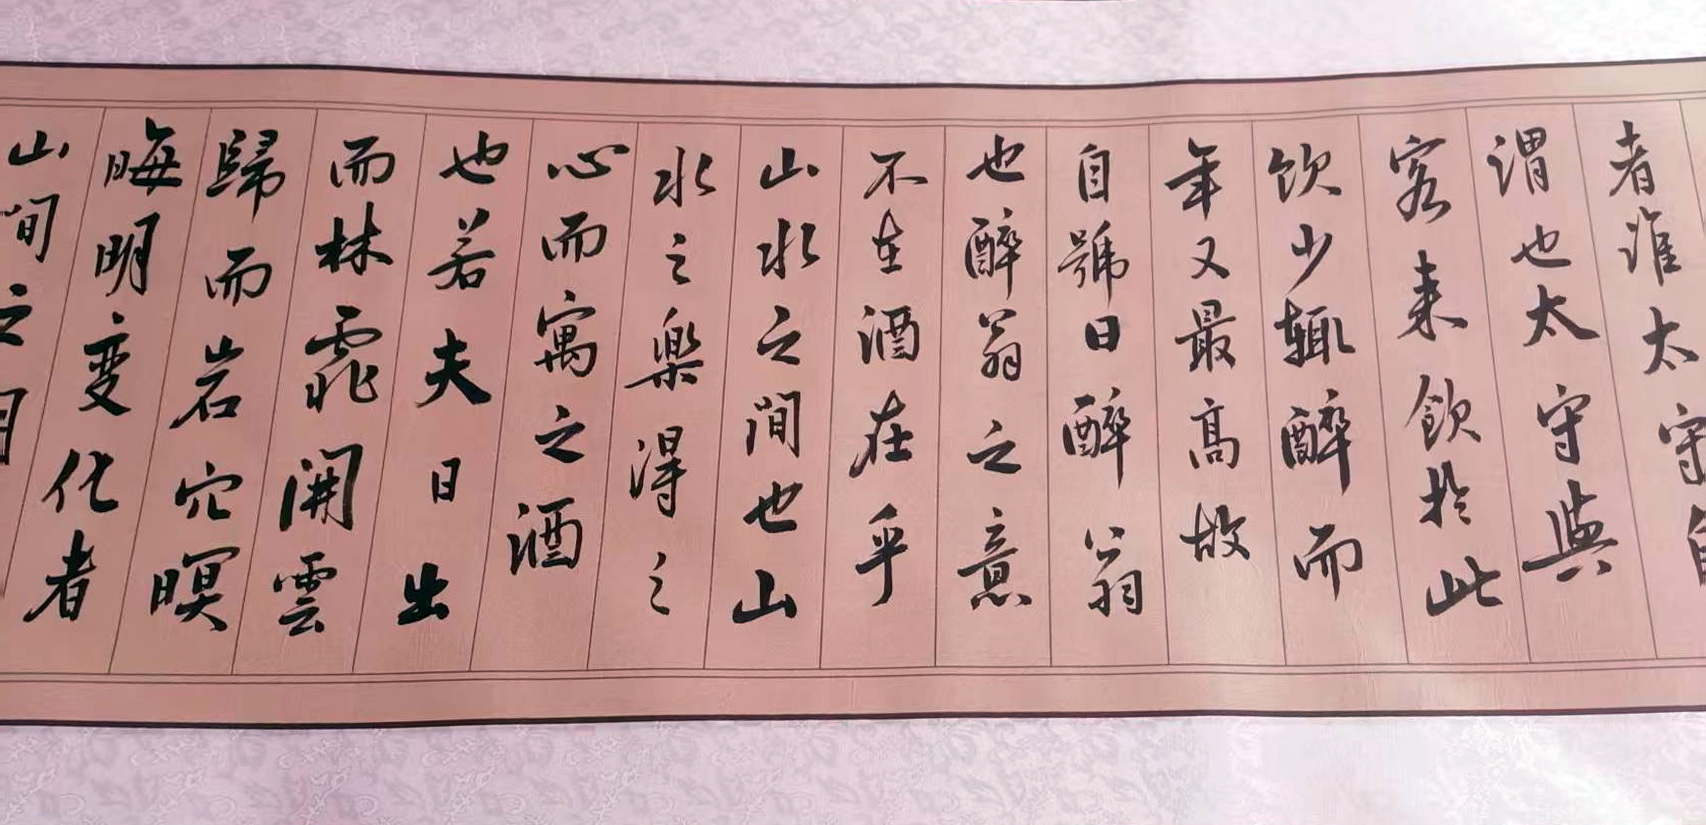 者誰太守自
謂也太守與
客来飲於此
饮少輒醉而
年又最高故
自號曰醉翁
也醉翁之意
不在酒在乎
山水之间也山
水之樂得之
心而寓之酒
也若夫日出
而林霏開雲
歸而岩穴暝
晦明变化者
山间之